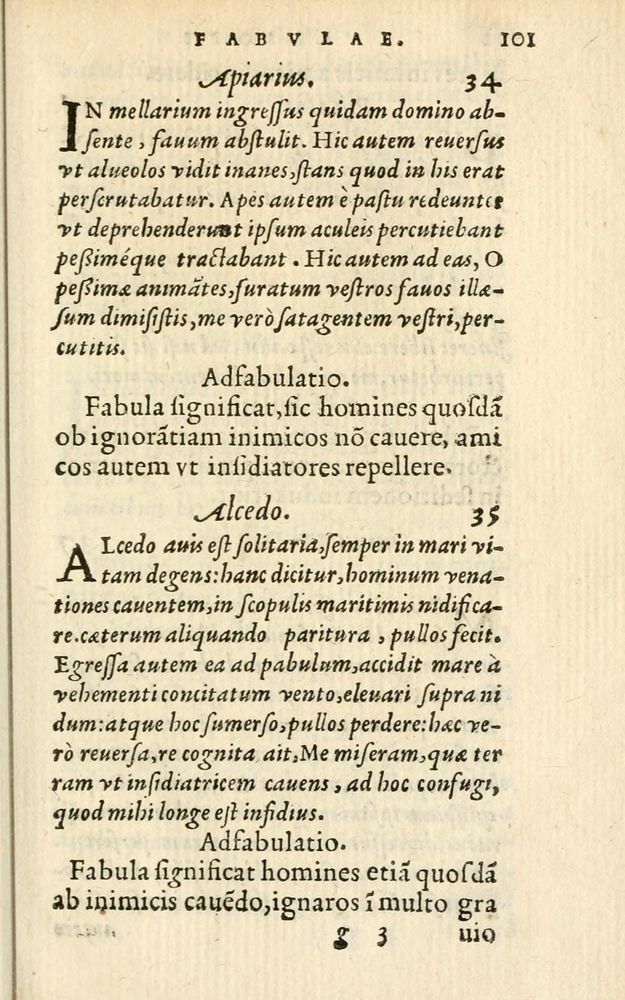 FABVLAE. 101
Apiarius. 34
IN mellarium ingreſſus quidam domino ab-
ſente, fauum abſtulit. Hic autem reuerſus
vt alueolos vidit inanes, ſtans quod in his erat
perſcrutabatur. Apes autem è paſtu redeuntes
vt deprehenderunt ipſum aculeis percutiebant
peßiméque tractabant. Hic autem ad eas, O
peßimæ animãtes, furatum veſtros fauos illæ-
ſum dimiſiſtis, me verò ſatagentem veſtri, per-
cutitis.
Adfabulatio.
Fabula ſignificat, ſic homines quoſdã
ob ignorãtiam inimicos nõ cauere, ami
cos autem vt inſidiatores repellere.
Alcedo. 35
ALcedo auis eſt ſolitaria, ſemper in mari vi-
tam degens: hanc dicitur, hominum vena-
tiones cauentem, in ſcopulis maritimis nidifica-
re. cæterum aliquando paritura, pullos fecit.
Egreſſa autem ea ad pabulum, accidit mare à
vehementi concitatum vento, eleuari ſupra ni
dum: atque hoc ſumerſo, pullos perdere: hæc ve-
rò reuerſa, re cognita ait, Me miſeram, quæ ter
ram vt inſidiatricem cauens, ad hoc confugi,
quod mihi longe eſt infidius.
Adfabulatio.
Fabula ſignificat homines etiã quoſdã
ab inimicis cauẽdo, ignaros ĩ multo gra
g 3 uio